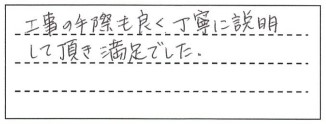 工事の手際も良く、丁寧に説明
して頂き満足でした.